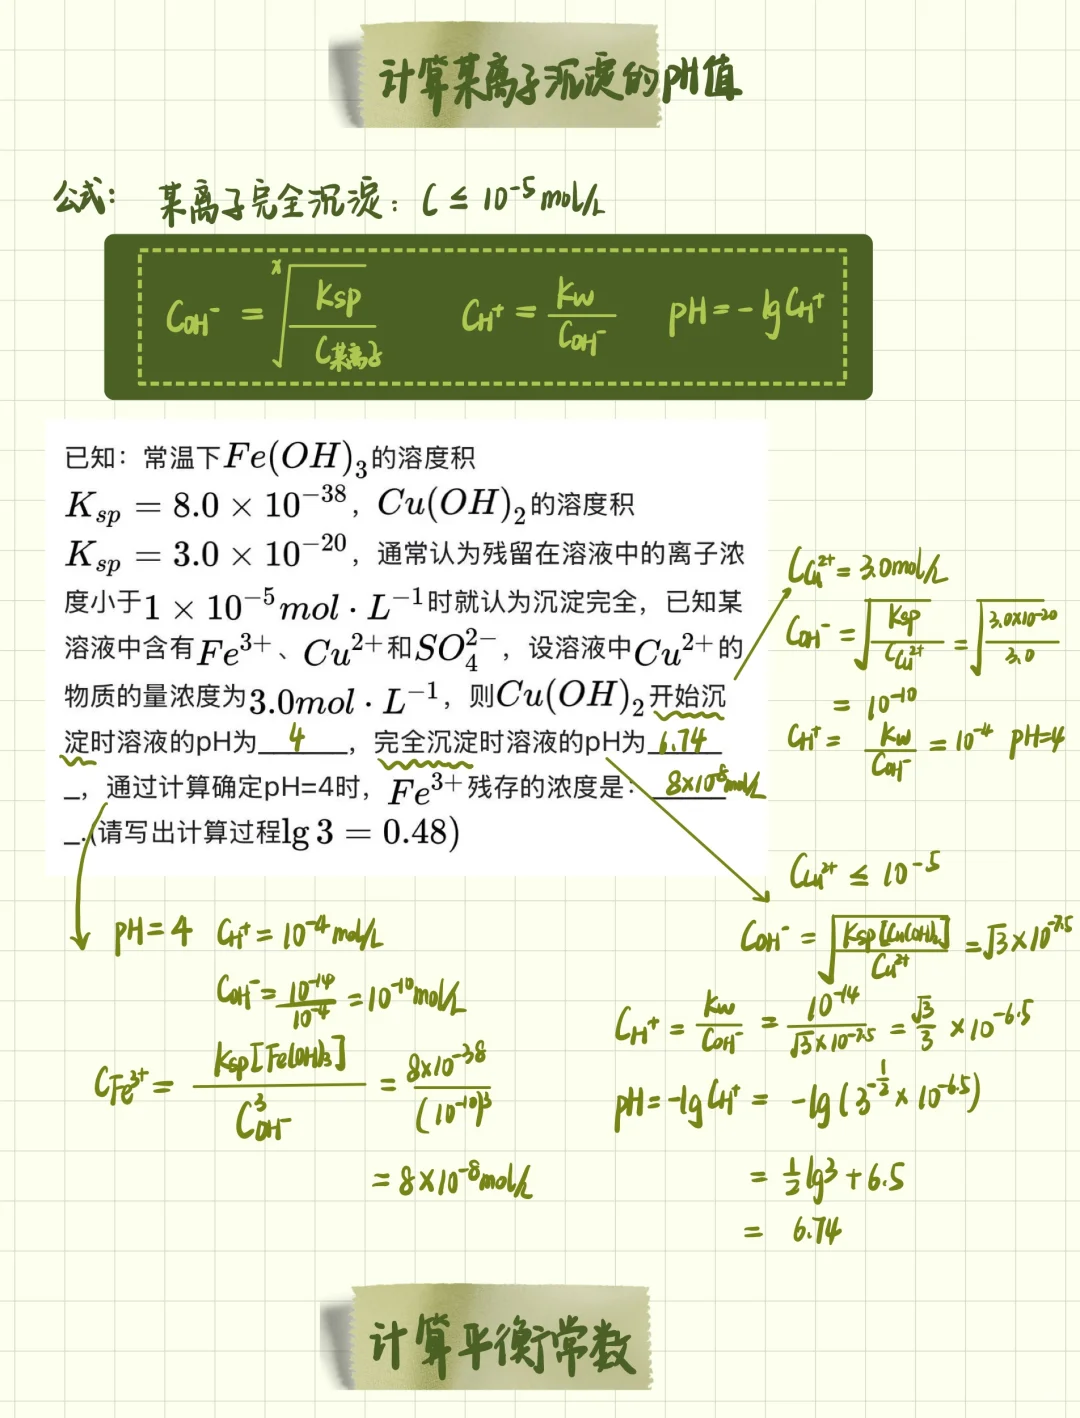 计算某离子沉淀的pH值
公式: 某离子完全沉淀: C ≤ 10⁻⁵mol/L
C_OH⁻ = ˣ√(Ksp/C某离子) C_H⁺ = Kw/C_OH⁻ pH = -lgC_H⁺
已知：常温下Fe(OH)₃的溶度积
Kₛₚ = 8.0 × 10⁻³⁸，Cu(OH)₂的溶度积
Kₛₚ = 3.0 × 10⁻²⁰，通常认为残留在溶液中的离子浓
度小于1 × 10⁻⁵mol · L⁻¹时就认为沉淀完全，已知某
溶液中含有Fe³⁺、Cu²⁺和SO₄²⁻，设溶液中Cu²⁺的
物质的量浓度为3.0mol · L⁻¹，则Cu(OH)₂开始沉
淀时溶液的pH为___4___，完全沉淀时溶液的pH为_6.74_
_，通过计算确定pH=4时，Fe³⁺残存的浓度是：8×10⁻⁸mol/L
_.(请写出计算过程lg 3 = 0.48)
C_Cu²⁺ = 3.0mol/L
C_OH⁻ = √(Ksp/C_Cu²⁺) = √(3.0×10⁻²⁰/3.0)
= 10⁻¹⁰
C_H⁺ = Kw/C_OH⁻ = 10⁻⁴ pH=4
C_Cu²⁺ ≤ 10⁻⁵
C_OH⁻ = √(Ksp[Cu(OH)₂]/Cu²⁺) = √3×10⁻⁷·⁵
C_H⁺ = Kw/C_OH⁻ = 10⁻¹⁴/(√3×10⁻⁷·⁵) = √3/3 × 10⁻⁶·⁵
pH = -lgC_H⁺ = -lg(3^(-1/2) × 10⁻⁶·⁵)
= 1/2 lg3 + 6.5
= 6.74
pH = 4 C_H⁺ = 10⁻⁴mol/L
C_OH⁻ = 10⁻¹⁴/10⁻⁴ = 10⁻¹⁰mol/L
C_Fe³⁺ = Ksp[Fe(OH)₃]/C³_OH⁻ = 8×10⁻³⁸/(10⁻¹⁰)³
= 8×10⁻⁸mol/L
计算平衡常数